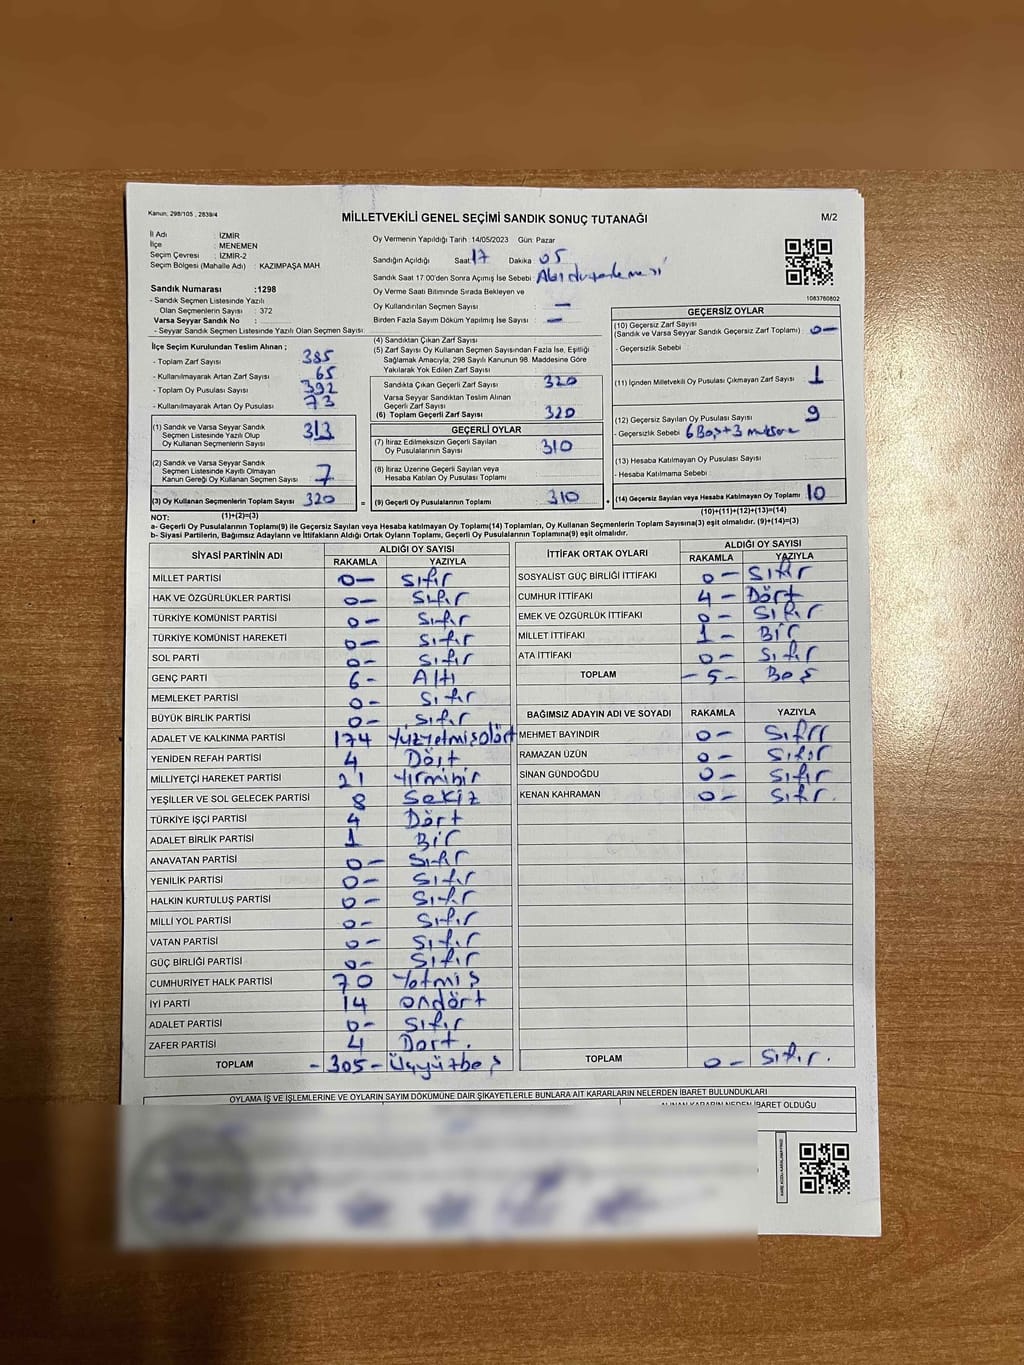 Kanun: 298/105 , 2839/4
MİLLETVEKİLİ GENEL SEÇİMİ SANDIK SONUÇ TUTANAĞI
M/2
İl Adı : İZMİR
İlçe : MENEMEN
Seçim Çevresi : İZMİR-2
Seçim Bölgesi (Mahalle Adı) : KAZIMPAŞA MAH
Sandık Numarası :1298
- Sandık Seçmen Listesinde Yazılı
Olan Seçmenlerin Sayısı : 372
Varsa Seyyar Sandık No :
- Seyyar Sandık Seçmen Listesinde Yazılı Olan Seçmen Sayısı:
Oy Vermenin Yapıldığı Tarih :14/05/2023 Gün: Pazar
Sandığın Açıldığı Saat: 17 Dakika : 05
Sandık Saat 17:00'den Sonra Açımış İse Sebebi :
Oy Verme Saati Bitiminde Sırada Bekleyen ve
Oy Kullandırılan Seçmen Sayısı : —
Birden Fazla Sayım Döküm Yapılmış İse Sayısı : —
1083760802
İlçe Seçim Kurulundan Teslim Alınan ;
- Toplam Zarf Sayısı : 385
- Kullanılmayarak Artan Zarf Sayısı : 65
- Toplam Oy Pusulası Sayısı : 392
- Kullanılmayarak Artan Oy Pusulası : 73
(1) Sandık ve Varsa Seyyar Sandık
Seçmen Listesinde Yazılı Olup
Oy Kullanan Seçmenlerin Sayısı : 313
(2) Sandık ve Varsa Seyyar Sandık
Seçmen Listesinde Kayıtlı Olmayan
Kanun Gereği Oy Kullanan Seçmen Sayısı : 7
(3) Oy Kullanan Seçmenlerin Toplam Sayısı : 320
(4) Sandıktan Çıkan Zarf Sayısı :
(5) Zarf Sayısı Oy Kullanan Seçmen Sayısından Fazla İse, Eşitliği
Sağlamak Amacıyla, 298 Sayılı Kanunun 98. Maddesine Göre
Yakılarak Yok Edilen Zarf Sayısı :
Sandıkta Çıkan Geçerli Zarf Sayısı : 320
Varsa Seyyar Sandıktan Teslim Alınan
Geçerli Zarf Sayısı :
(6) Toplam Geçerli Zarf Sayısı : 320
GEÇERLİ OYLAR
(7) İtiraz Edilmeksizin Geçerli Sayılan
Oy Pusulalarının Sayısı : 310
(8) İtiraz Üzerine Geçerli Sayılan veya
Hesaba Katılan Oy Pusulası Toplamı :
= (9) Geçerli Oy Pusulalarının Toplamı : 310
GEÇERSİZ OYLAR
(10) Geçersiz Zarf Sayısı
(Sandık ve Varsa Seyyar Sandık Geçersiz Zarf Toplamı) : 0—
- Geçersizlik Sebebi :
(11) İçinden Milletvekili Oy Pusulası Çıkmayan Zarf Sayısı : 1
(12) Geçersiz Sayılan Oy Pusulası Sayısı : 9
- Geçersizlik Sebebi : 6 Boş+3
(13) Hesaba Katılmayan Oy Pusulası Sayısı :
- Hesaba Katılmama Sebebi :
+ (14) Geçersiz Sayılan veya Hesaba Katılmayan Oy Toplamı : 10
NOT: (1)+(2)=(3)
(10)+(11)+(12)+(13)=(14)
a- Geçerli Oy Pusulalarının Toplamı(9) ile Geçersiz Sayılan veya Hesaba katılmayan Oy Toplamı(14) Toplamları, Oy Kullanan Seçmenlerin Toplam Sayısına(3) eşit olmalıdır. (9)+(14)=(3)
b- Siyasi Partilerin, Bağımsız Adayların ve İttifakların Aldığı Ortak Oyların Toplamı, Geçerli Oy Pusulalarının Toplamına(9) eşit olmalıdır.
SİYASİ PARTİNİN ADI
ALDIĞI OY SAYISI
RAKAMLA YAZIYLA
MİLLET PARTİSİ 0— Sıfır
HAK VE ÖZGÜRLÜKLER PARTİSİ 0— Sıfır
TÜRKİYE KOMÜNİST PARTİSİ 0— Sıfır
TÜRKİYE KOMÜNİST HAREKETİ 0— Sıfır
SOL PARTİ 0— Sıfır
GENÇ PARTİ 6- Altı
MEMLEKET PARTİSİ 0- Sıfır
BÜYÜK BİRLİK PARTİSİ 0- Sıfır
ADALET VE KALKINMA PARTİSİ 174 Yüzyetmişdört
YENİDEN REFAH PARTİSİ 4 Dört
MİLLİYETÇİ HAREKET PARTİSİ 21 Yirmibir
YEŞİLLER VE SOL GELECEK PARTİSİ 8 Sekiz
TÜRKİYE İŞÇİ PARTİSİ 4 Dört
ADALET BİRLİK PARTİSİ 1 Bir
ANAVATAN PARTİSİ 0— Sıfır
YENİLİK PARTİSİ 0— Sıfır
HALKIN KURTULUŞ PARTİSİ 0— Sıfır
MİLLİ YOL PARTİSİ 0- Sıfır
VATAN PARTİSİ 0- Sıfır
GÜÇ BİRLİĞİ PARTİSİ 0- Sıfır
CUMHURİYET HALK PARTİSİ 70 Yetmiş
İYİ PARTİ 14 Ondört
ADALET PARTİSİ 0- Sıfır
ZAFER PARTİSİ 4 Dört.
TOPLAM -305- Üçyüzbeş
İTTİFAK ORTAK OYLARI
ALDIĞI OY SAYISI
RAKAMLA YAZIYLA
SOSYALİST GÜÇ BİRLİĞİ İTTİFAKI 0— Sıfır
CUMHUR İTTİFAKI 4- Dört
EMEK VE ÖZGÜRLÜK İTTİFAKI 0- Sıfır
MİLLET İTTİFAKI 1- Bir
ATA İTTİFAKI 0- Sıfır
TOPLAM -5- Beş
BAĞIMSIZ ADAYIN ADI VE SOYADI RAKAMLA YAZIYLA
MEHMET BAYINDIR 0— Sıfır
RAMAZAN ÜZÜN 0- Sıfır
SİNAN GÜNDOĞDU 0- Sıfır
KENAN KAHRAMAN 0- Sıfır.
TOPLAM 0- Sıfır.
OYLAMA İŞ VE İŞLEMLERİNE VE OYLARIN SAYIM DÖKÜMÜNE DAİR ŞİKAYETLERLE BUNLARA AİT KARARLARIN NELERDEN İBARET BULUNDUKLARI
ALINAN KARARIN NEDEN İBARET OLDUĞU